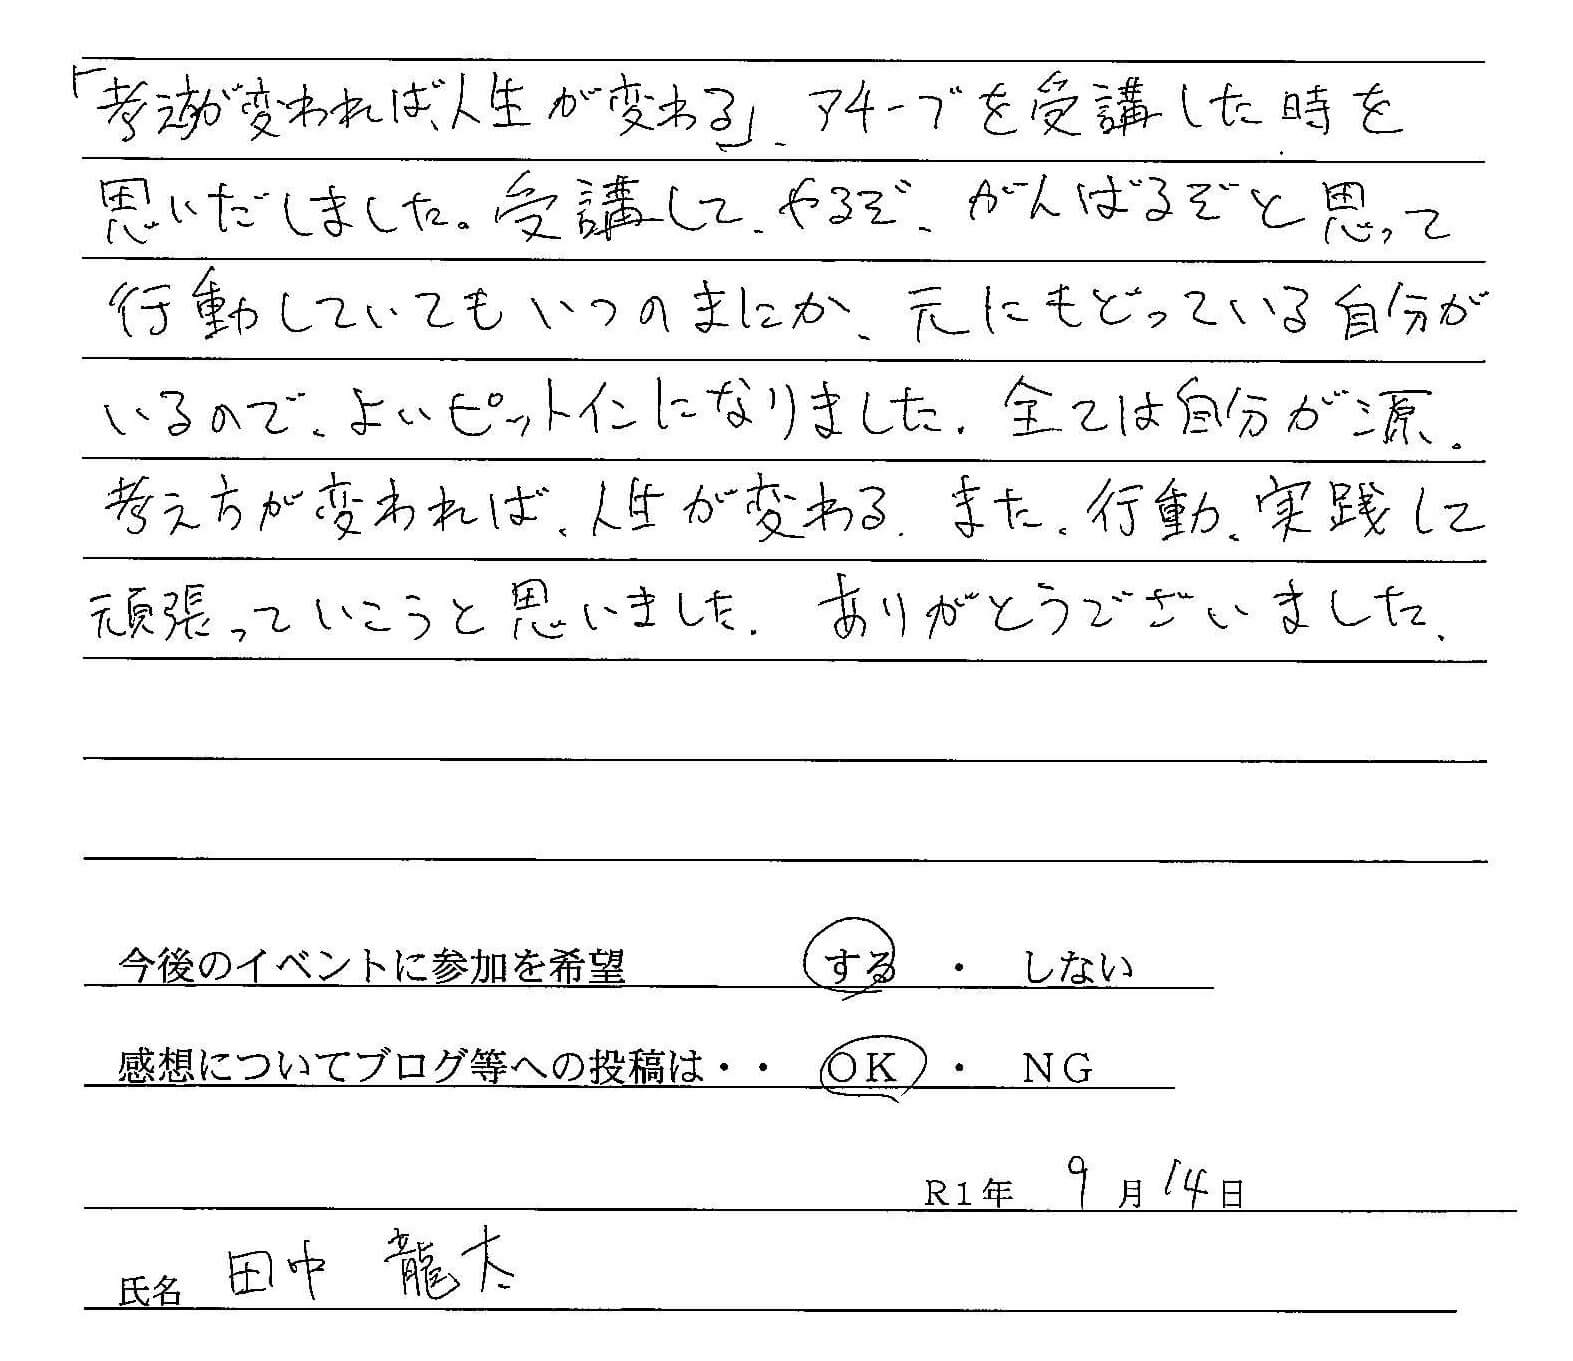 「考え方が変われば、人生が変わる」、アチーブを受講した時を
思いだしました。受講して、やるぞ、がんばるぞと思って
行動していてもいつのまにか、元にもどっている自分が
いるので、よいピットインになりました。全ては自分が源。
考え方が変われば、人生が変わる。また、行動、実践して
頑張っていこうと思いました。ありがとうございました。
今後のイベントに参加を希望 する ・ しない
感想についてブログ等への投稿は・・ OK ・ NG
R1年 9月14日
氏名 田中 龍太